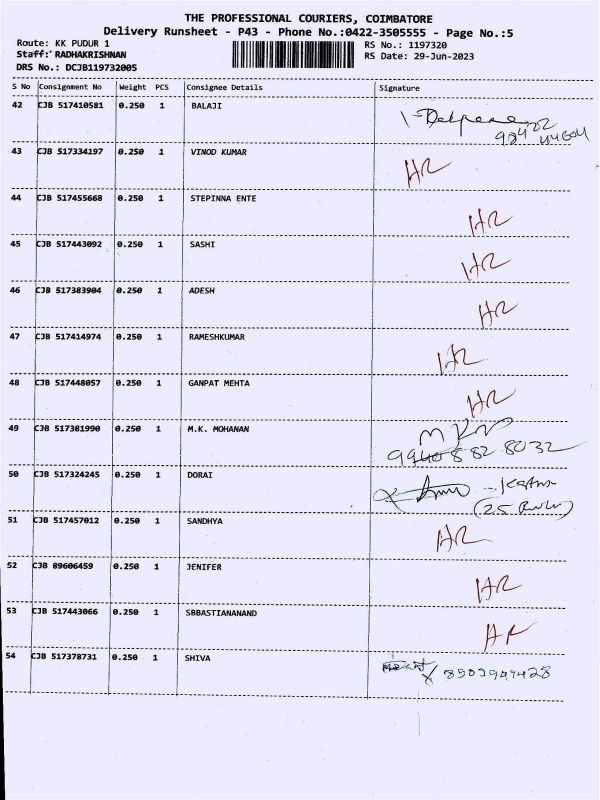 THE PROFESSIONAL COURIERS, COIMBATORE
Delivery Runsheet - P43 - Phone No.:0422-3505555 - Page No.:5
Route: KK PUDUR 1 RS No.: 1197320
Staff: RADHAKRISHNAN RS Date: 29-Jun-2023
DRS No.: DCJB119732005
S No Consignment No Weight PCS Consignee Details Signature
42 CJB 517410581 0.250 1 BALAJI
43 CJB 517334197 0.250 1 VINOD KUMAR HR
44 CJB 517455668 0.250 1 STEPINNA ENTE HR
45 CJB 517443092 0.250 1 SASHI HR
46 CJB 517383904 0.250 1 ADESH HR
47 CJB 517414974 0.250 1 RAMESHKUMAR HR
48 CJB 517448057 0.250 1 GANPAT MEHTA HR
49 CJB 517381990 0.250 1 M.K. MOHANAN
50 CJB 517324245 0.250 1 DORAI
51 CJB 517457012 0.250 1 SANDHYA HR
52 CJB 89606459 0.250 1 JENIFER HR
53 CJB 517443066 0.250 1 SBBASTIANANAND HR
54 CJB 517378731 0.250 1 SHIVA